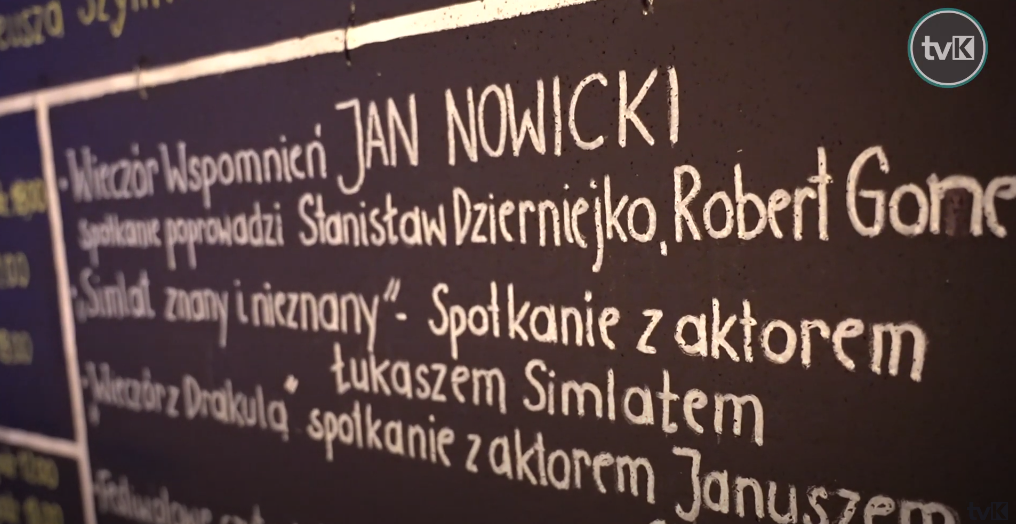 tvK
· Wieczór Wspomnień JAN NOWICKI
spotkanie poprowadzi Stanisław Dzierniejko, Robert Gone
„Simlat znany i nieznany” - Spotkanie z aktorem
Łukaszem Simlatem
„Wieczór z Drakulą” spotkanie z aktorem Januszem
tvK